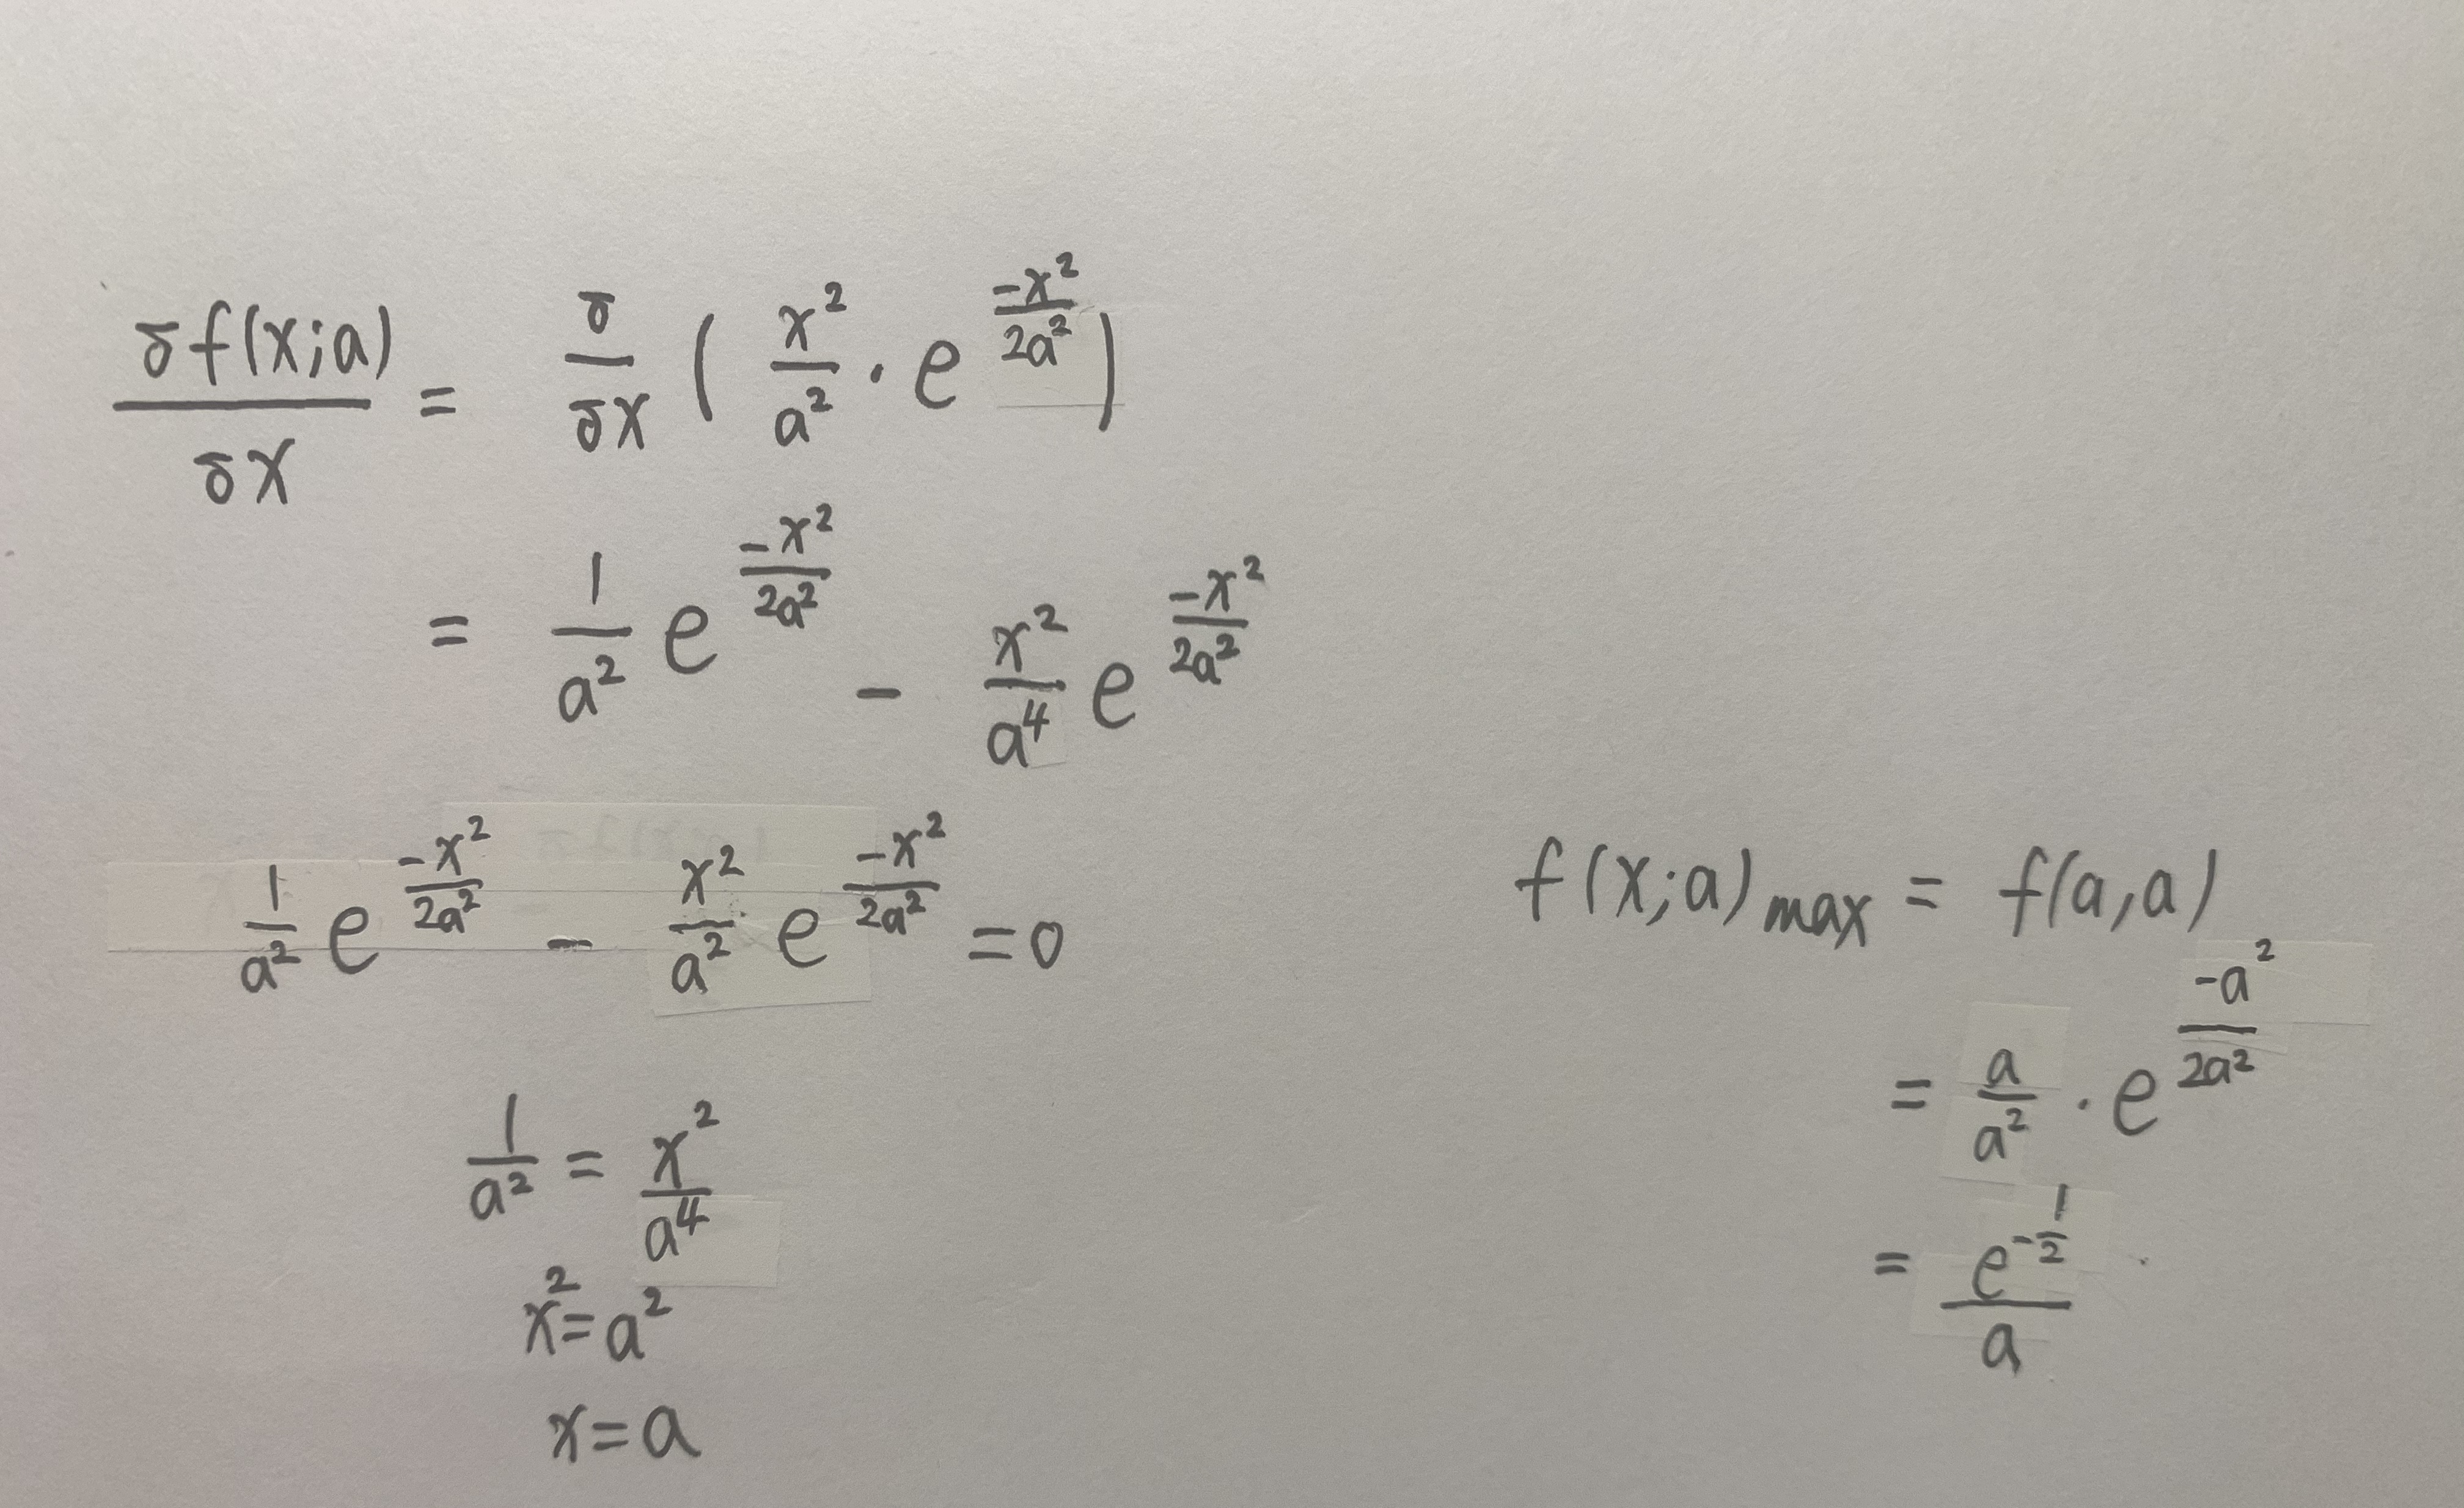 δf(x;a)/δx = δ/δx ( x²/a² · e^(-x²/2a²) )
= 1/a² e^(-x²/2a²) - x²/a⁴ e^(-x²/2a²)
1/a² e^(-x²/2a²) - x²/a² e^(-x²/2a²) = 0
1/a² = x²/a⁴
x² = a²
x = a
f(x;a)max = f(a,a)
= a/a² · e^(-a²/2a²)
= e^(-1/2)/a